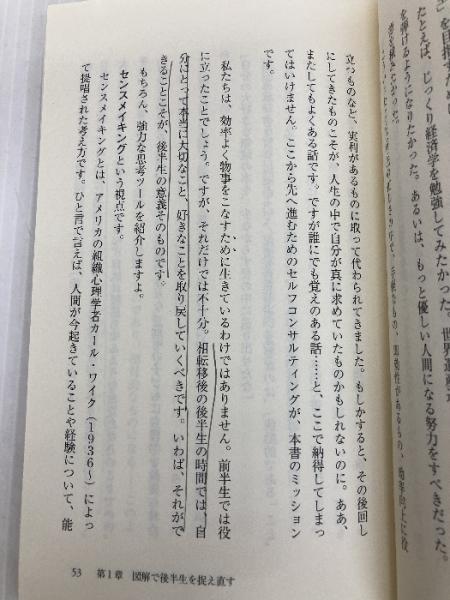 」を目指し
たとえば、じっくり経済学を勉強してみたかった。世界遺産
を弾けるようになりたかった。あるいは、もっと優しい人間になる努力をすべきだった。
立つものなど、実利があるものに取って代わられてきました。もしかすると、その後回し
にしてきたものこそが、人生の中で自分が真に求めていたものかもしれないのに。ああ、
またしてもよくある話です。ですが誰にでも覚えのある話……と、ここで納得してしまっ
てはいけません。ここから先へ進むためのセルフコンサルティングが、本書のミッション
です。
私たちは、効率よく物事をこなすために生きているわけではありません。前半生では役
に立ったことでしょう。ですが、それだけでは不十分。相転移後の後半生の時間では、自
分にとって本当に大切なこと、好きなことを取り戻していくべきです。いわば、それがで
きることこそが、後半生の意義そのものです。
もちろん、強力な思考ツールを紹介しますよ。
センスメイキングという視点です。
センスメイキングとは、アメリカの組織心理学者カール・ワイク（1936〜）によっ
て提唱された考え方です。ひと言で言えば、人間が今起きていることや経験について、能
53 第1章 図解で後半生を捉え直す